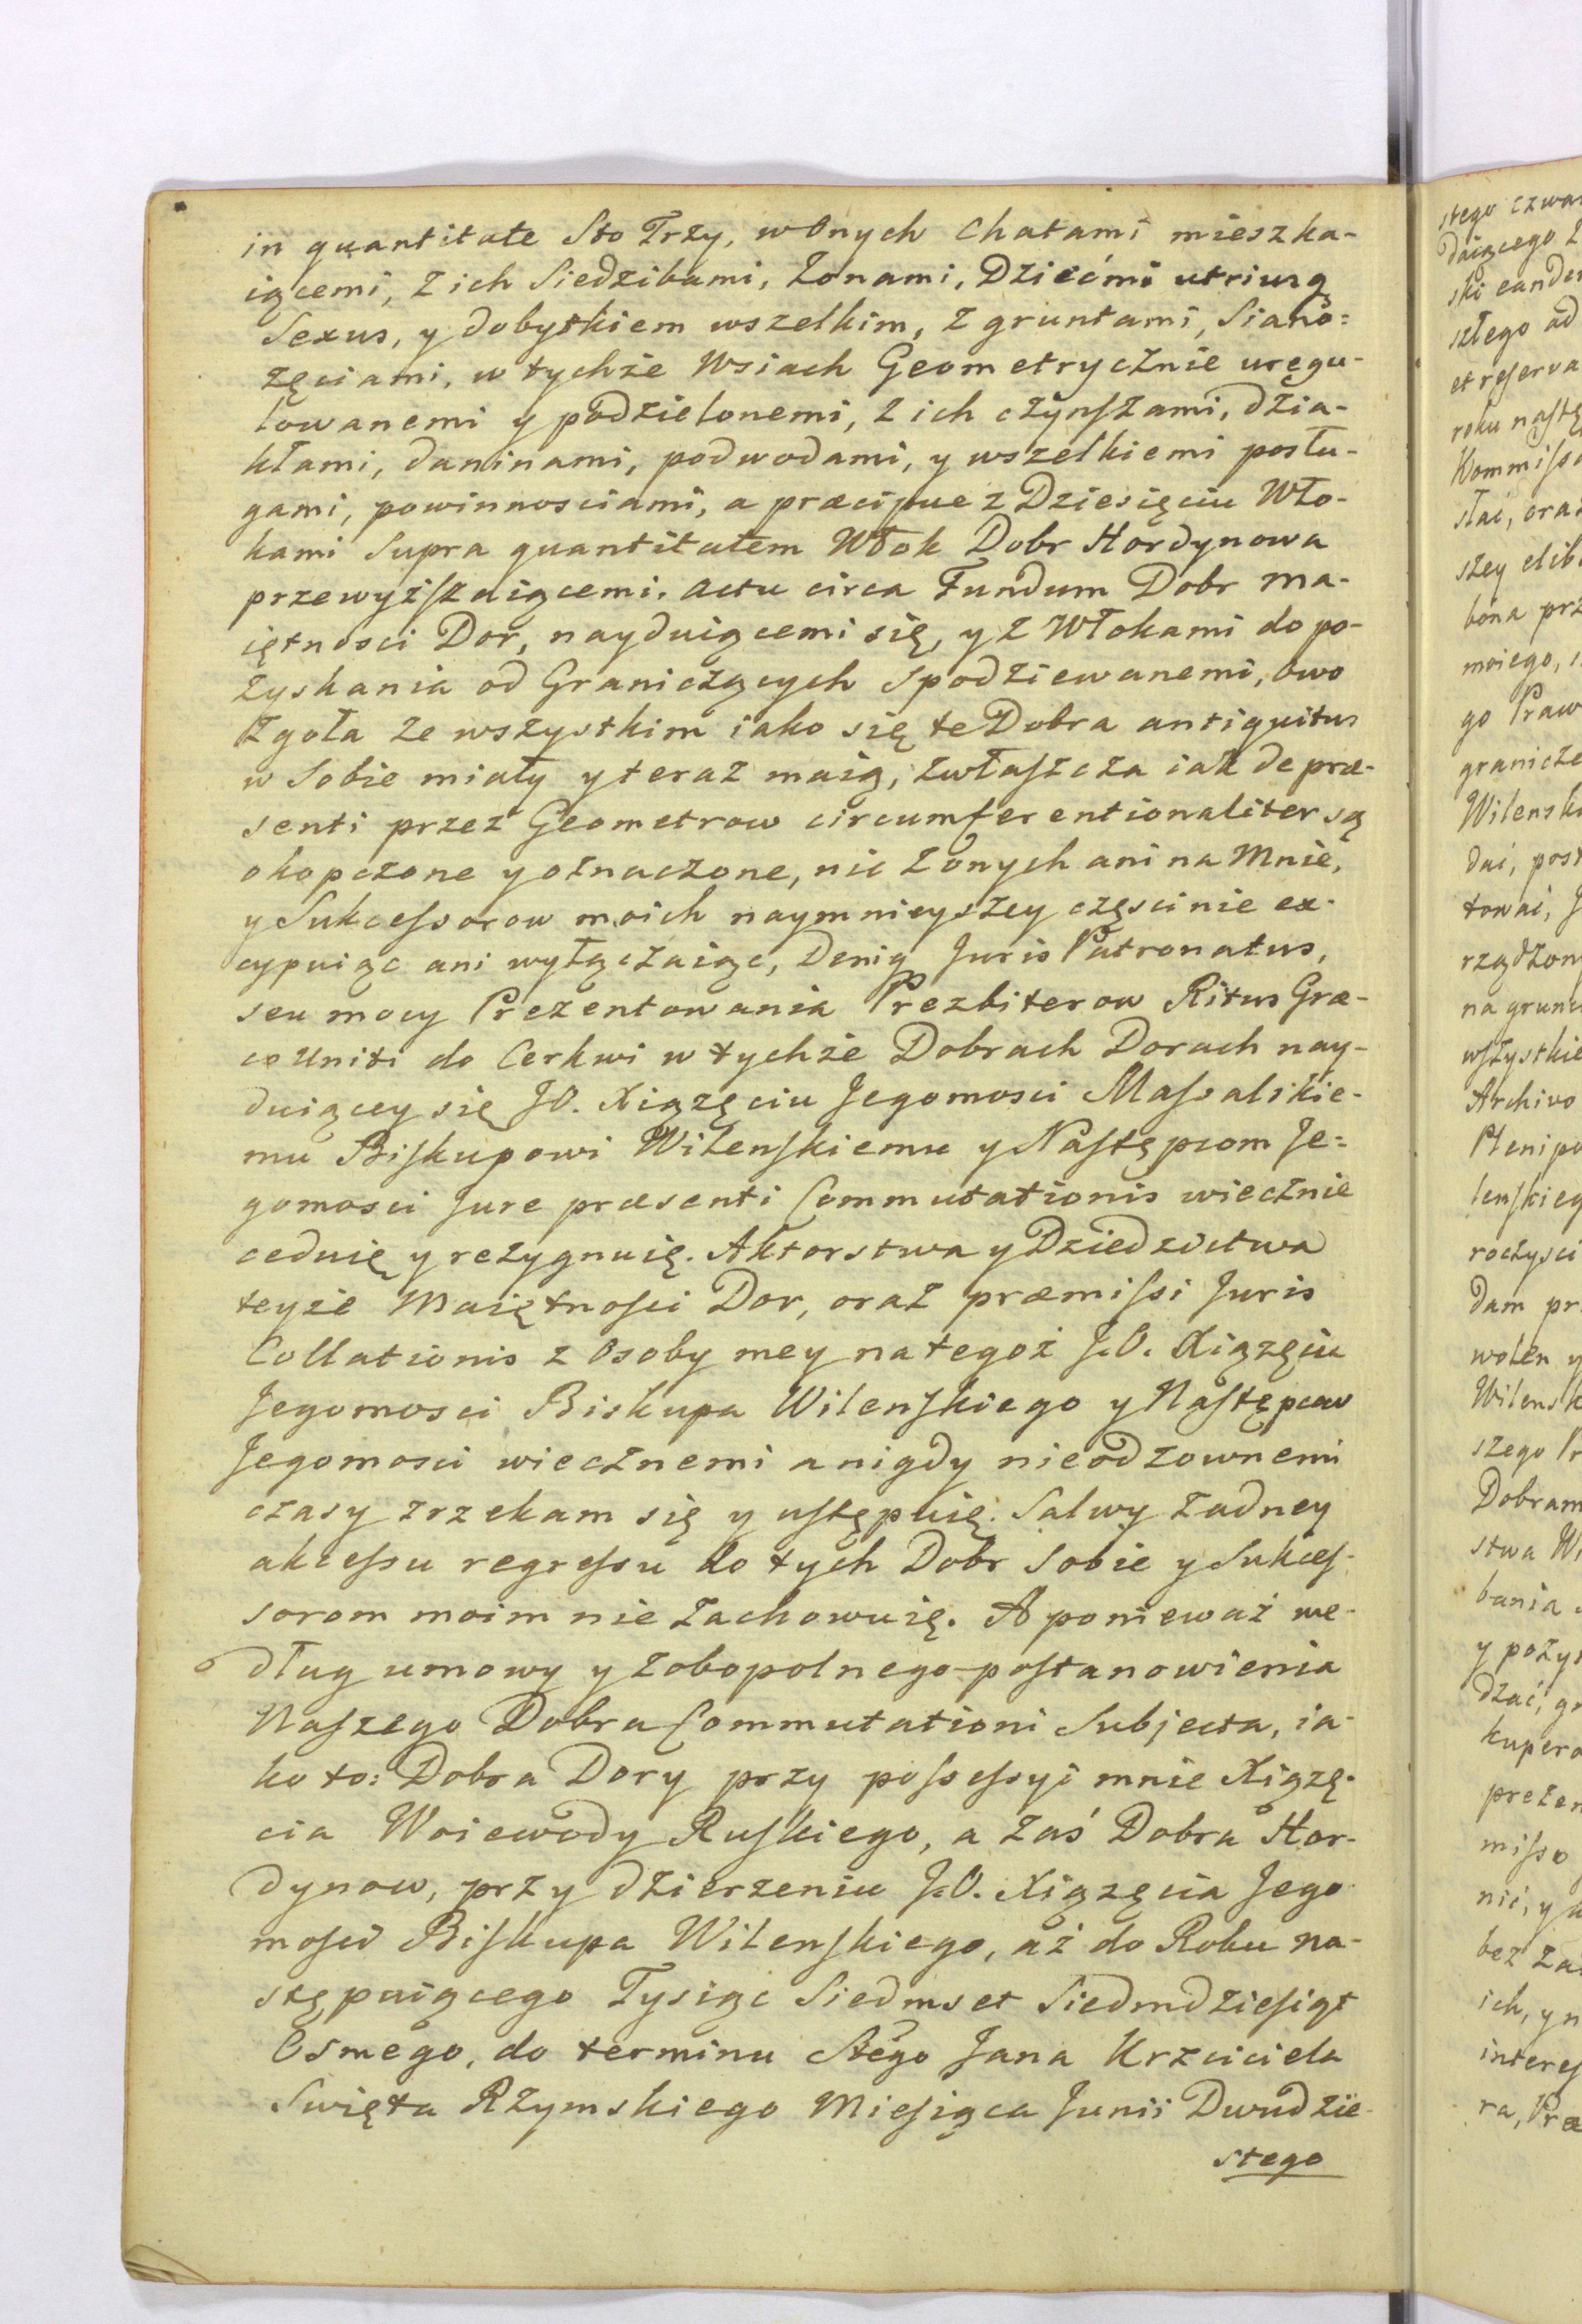 in quantitate Sto Trzy, w Onych Chatami mieszka-
iącemi, z ich Siedzibami, Zonami, Dziećmi utriusq
Sexus, y dobytkiem wszelkim, z gruntami, Siano=
zęciami, w tychże Wsiach Geometrycznie uregu-
lowanemi y podzielonemi, z ich czynszami, dzia-
kłami, daninami, podwodami, y wszelkiemi posłu-
gami, powinnosciami, a præcipue z Dziesięciu Wło-
kami Supra quantitatem Włok Dobr Hordynowa
przewyższaiącemi. actu circa Fundum Dobr Ma-
iętnosci Dor, nayduiącemi się, y z Włokami do po-
zyskania od Graniczących Spodziewanemi, owo
zgoła ze wszystkim iako się te Dobra antiquitus
w Sobie miały y teraz maią, zwłaszcza iak de præ-
senti przez Geometrow circumferentionaliter są
okopczone y oznaczone, nic z onych ani na Mnie,
y Sukcessorow moich naymnieyszey częsci nie ex-
cypuiąc ani wyłączaiąc, Deniq Juris Patronatus,
seu mocy Prezentowania Prezbiterow Ritus Græ-
co Uniti do Cerkwi w tychże Dobrach Dorach nay-
duiącey się JO. Xiążęciu Jegomosci Massalskie-
mu Biskupowi Wilenskiemu y Następcom Je=
gomosci Jure præsenti Commutationis wiecznie
ceduię y rezygnuię. Aktorstwa y Dziedzictwa
teyże Maiętnosci Dor, oraz præmissi Juris
Collationis z Osoby mey na tegoż J.O. Xiążęcia
Jegomosci Biskupa Wilenskiego y Następcow
Jegomosci wiecznemi a nigdy nieodzownemi
czasy zrzekam się y ustępuię. Salwy żadney
akcessu regressu do tych Dobr Sobie y Sukces-
sorom moim nie zachowuię. A ponieważ we-
dług umowy y zobopolnego postanowienia
Naszego Dobra Commutationi Subjecta, ia-
ko to: Dobra Dory przy possessyi mnie Xiążę-
cia Woiewody Ruskiego, a zaś Dobra Hor-
dynow, przy dzierzeniu J.O. Xiążęcia Jego
mosci Biskupa Wilenskiego, aż do Roku na-
stępuiącego Tysiąc Siedmset Siedmdziesiąt
Osmego, do terminu Stego Jana Krzciciela
Swięta Rzymskiego Miesiąca Junii Dwudzie-
stego